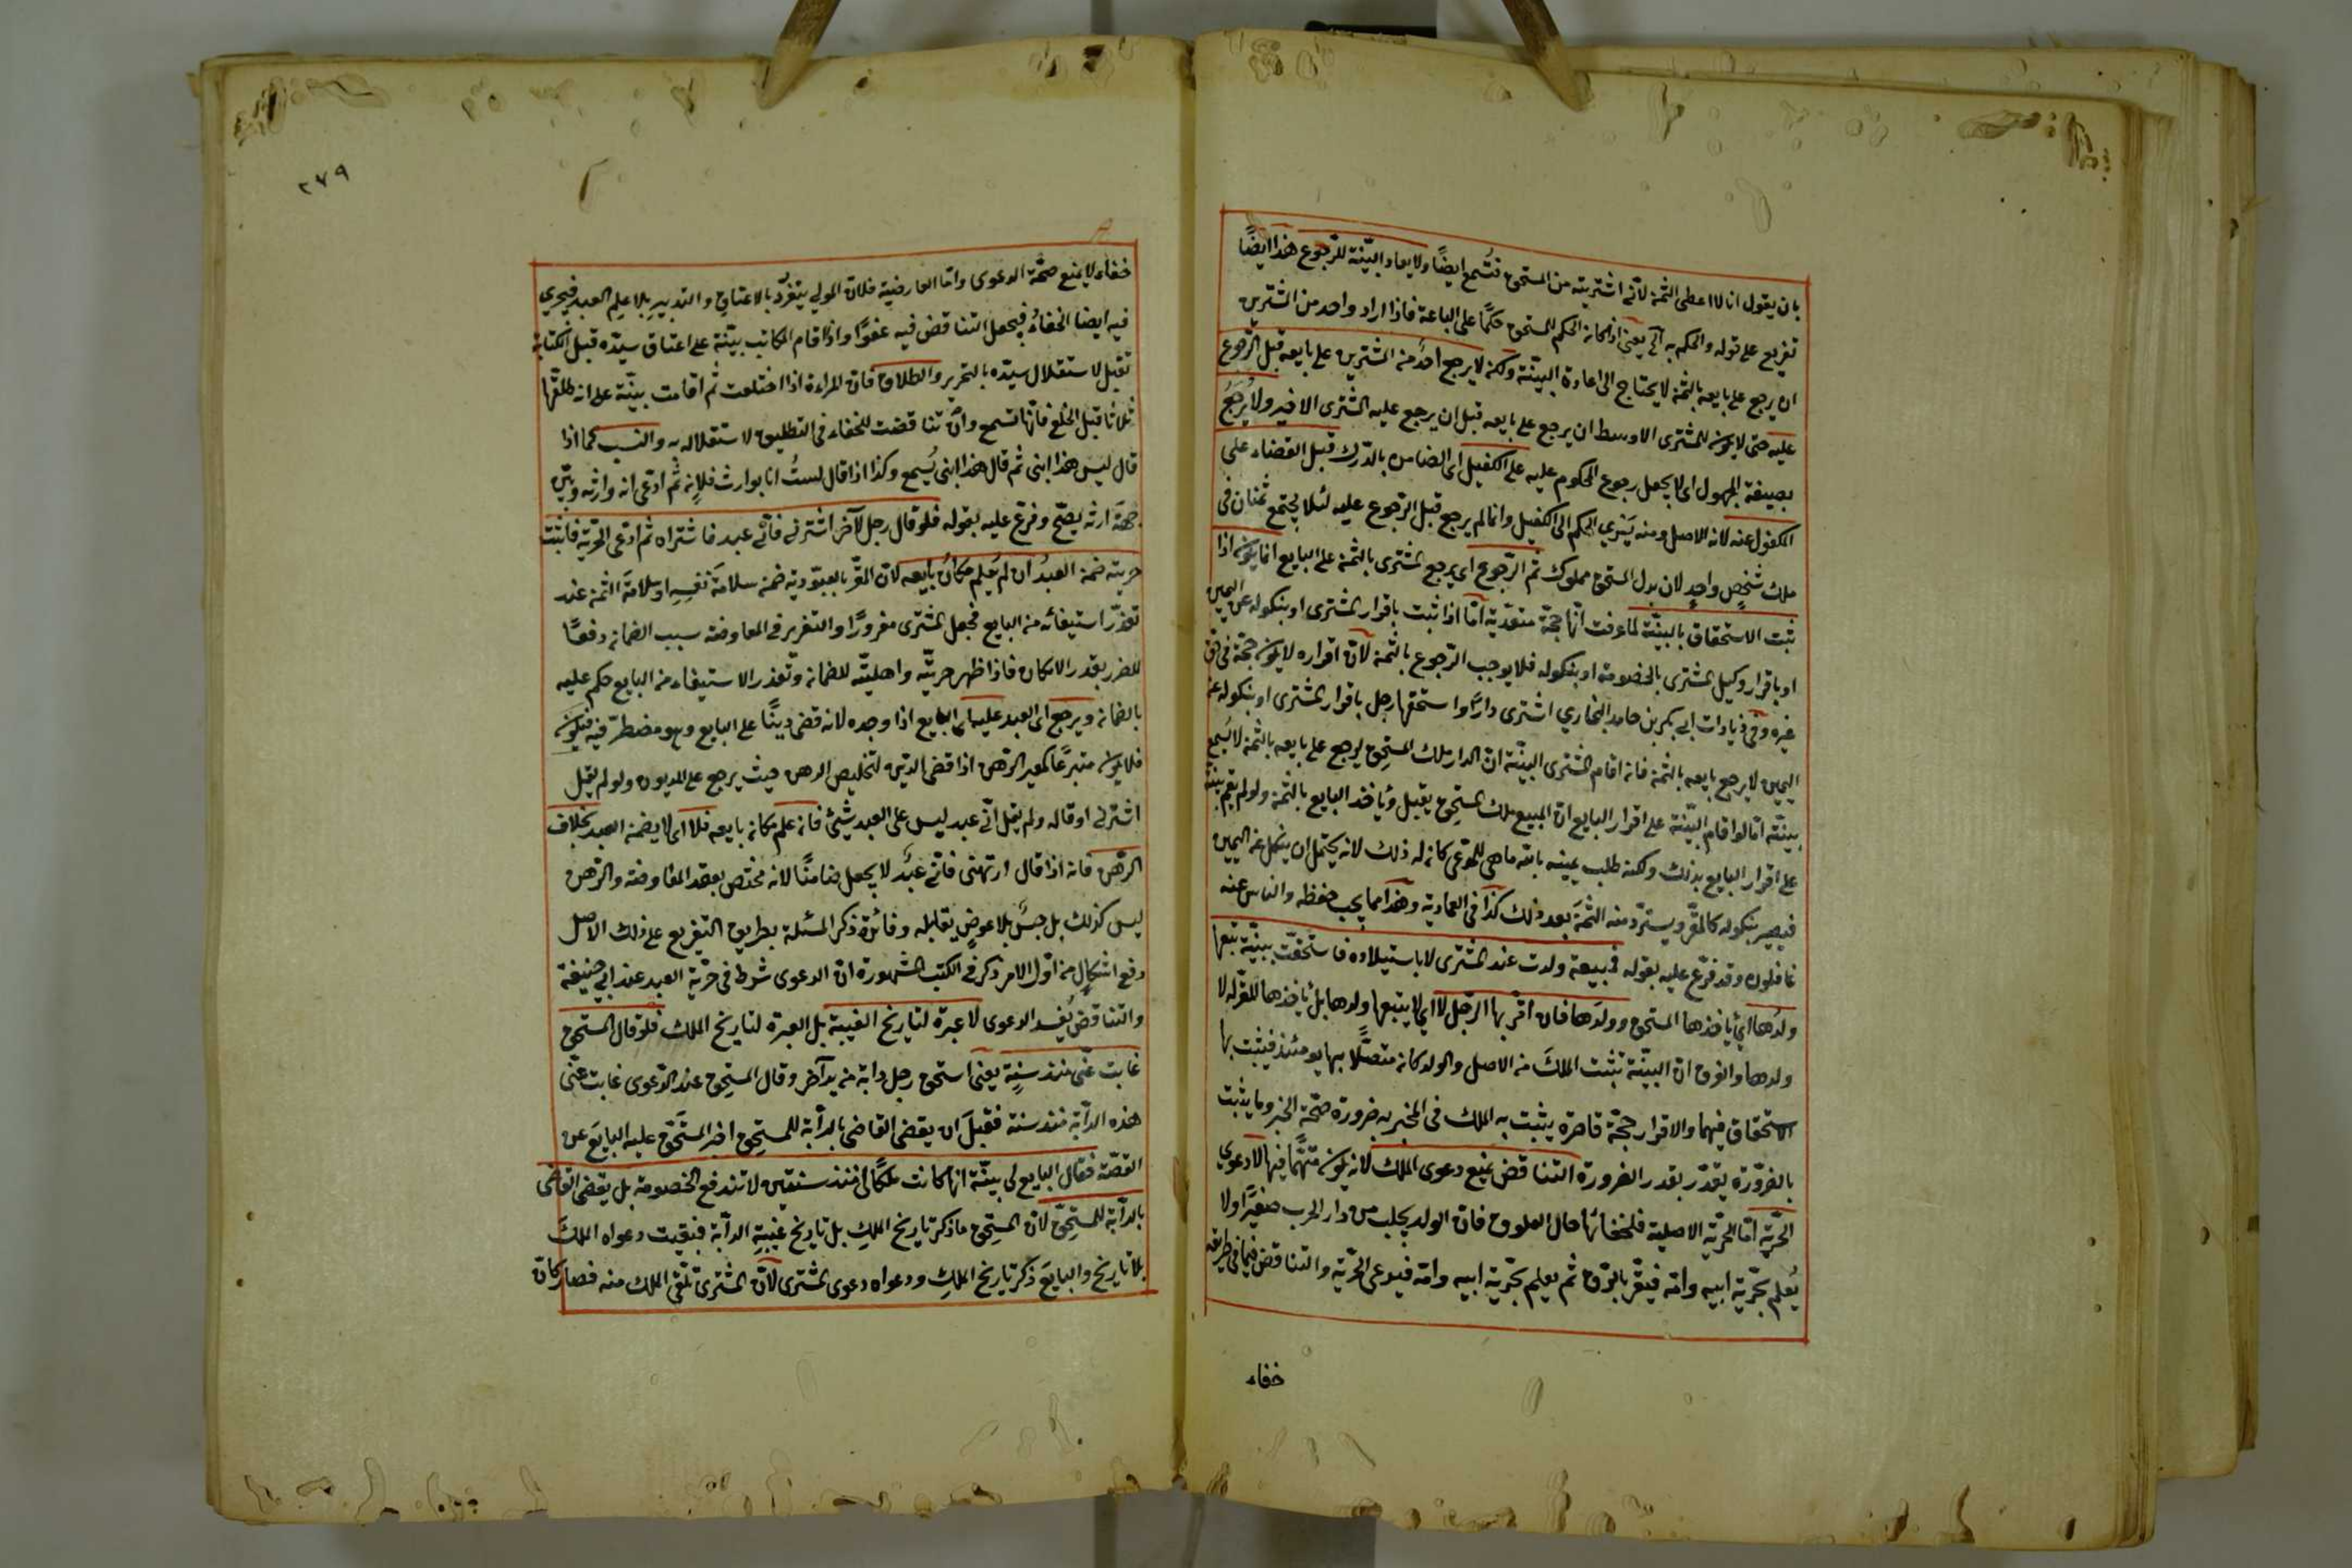 بان يقول انا لا اعطى الثمن لأنى اشتريته من المستحق فتُسمع ايضًا ولا يعاد البيّنة للرّجوع هذا ايضًا
تفريع على قوله والحكم به آلى يعنى اذا كان الحكم للمستحق حكمًا على الباعة فاذا اراد واحد من المشترين
ان يرجع على بايعه بالثمن لا يحتاج الى اعادة البيّنة ولكن لا يرجع احدٌ من المشترين على بايعه قبل الرّجوع
عليه حتى لا يكون للمشترى الاوسط ان يرجع على بايعه قبل ان يرجع عليه المشترى الاخير ولا يُرجَعُ
بصيغة المجهول اى لا يجعل رجوع المحكوم عليه على الكفيل اى الضامن بالدّرك قبل القضاء على
المكفول عنه لانه الاصل ومنه يَسْرِي الحكم الى الكفيل وانما لم يرجع قبل الرّجوع عليه لئلا يجتمع ثمنان فى
ملك شخصٍ واحدٍ لان بدل المستحق مملوك ثم الرّجوع اى يرجع المشترى بالثمن على البايع انما يكون اذا
ثبت الاستحقاق بالبيّنة لما عرفت انّها حجّة متعدّية امّا اذا ثبت باقرار المشترى او بنكوله عن اليمين
او باقرار وكيل المشترى بالخصومة او بنكوله فلا يوجب الرّجوع بالثمن لانّ اقراره لا يكون حجّة فى حق
غيره وفى زيادات ابى بكر بن حامد البخاري اشترى دارًا واستحقها رجل باقرار المشترى او بنكوله عن
اليمين لا يرجع بايعه بالثمن فان اقام المشترى البيّنة انّ الدار ملك المستحق ليرجع على بايعه بالثمن لا يُسمع
بينته امّا لو اقام البيّنة على اقرار البايع انّ المبيع ملك المستحق يقبل ويأخذ البايع بالثمن ولو لم يقم بينة
على اقرار البايع بذلك ولكن طلب يمينه بالله ما هى للمدّعى كان له ذلك لانه يحتمل ان ينكل عن اليمين
فيصير بنكوله كالمقرّ ويستردّ منه الثمنَ بعد ذلك كذا فى العمادية وهذا مما يجب حفظه والناس عنه
غافلون وقد فرّع عليه بقوله فى بيعة ولدت عند المشترى لا باستيلاده فاستحقّت ببيّنة تبعها
ولدُها اىْ يأخذها المستحق وولدَها فان اقرّ بها الرّجل لا اى لا يتبعها ولدها بل يأخذها المقرّ له لا
ولدها والفرق انّ البيّنة تثبت الملكَ من الاصل والولد كان متصلًا بها يومئذ فيثبت بها
الاستحقاق فيهما والاقرار حجّة قاصرة يثبت به الملك فى المخبر به ضرورة صحّة الخبر وما يثبت
بالضرورة يقدّر بقدر الضرورة التناقض يمنع دعوى الملك لانه يكون متّهمًا فيها لا دعوى
الحرّية امّا الحرّية الاصلية فلخفائها حال العلوق فان الولد يجلب من دار الحرب صغيرًا ولا
يُعلم بحرّية ابيه وامّه فيقرّ بالرّق ثم يعلم بحرّية ابيه وامّه فيدعى الحرّية والتناقض فيما فى طريقه
خفاء
٢٧٩
خفاء لا يمنع صحّة الدعوى وامّا العارضية فلان المولى يتفرّد بالاعتاق والتدبير بلا علم العبد فيجري
فيه ايضا الخفاءُ فيجعل التناقض فيه عفوًا واذا قام المكاتب ببيّنة على اعتاق سيّده قبل الكتابة
تقبل لاستقلال سيّده بالتحرير والطلاق فان المراءة اذا اختلعت ثم اقامت بيّنة على انه طلقّها
ثلاثا قبل الخلع فانّها تسمع وان تناقضت للخفاء فى التطليق لاستقلاله به والنسب كما اذا
قال ليس هذا ابنى ثم قال هذا ابنى يُسمع وكذا اذا قال لستُ انا بوارث فلان ثم ادّعى انه وارثه وبيّن
جهةَ ارثه يصحّ وفرّع عليه بقوله فلو قال رجل لآخر اشترنى فأنّى عبد فاشتراه ثم ادّعى الحرّية فاثبت
حريته ضمن العبدُ ان لم يُعلم مكانُ بايعه لان المقرّ بالعبوّدية ضمن سلامةَ نفسِهِ او سلامةَ الثمن عند
تعذّر استيفائه من البايع فجعل المشترى مغرورًا والتغرير فى المعاوضة سبب الضمان دفعًا
للضرر بقدر الامكان فاذا ظهر حريتّه واهليتّه للضمان وتعذر الاستيفاء من البايع حكم عليه
بالضمان ويرجع اى العبد عليه اى البايع اذا وجده لانه قضى دينًا على البايع وهو مضطرّ فيه فيكون
فلا يكون متبرعًا كمعير الرّهن اذا قضى الدّين لتخليص الرهن حيث يرجع على المديون ولو لم يقل
اشترنى او قاله ولم يقل انّى عبد ليس على العبد شئ فان علم مكان بايعه فلا اى لا يضمن العبد بخلاف
الرّهن فانه اذا قال ارتهنى فأنّى عبدٌ لا يجعل ضامنًا لانه مختص بعقد المعاوضة والرّهن
ليس كذلك بل حبسٌ بلا عوضٍ يقابله وفائدة ذكر المسئلة بطريق التفريع على ذلك الاصل
دفع اشكالٍ من اوّل الامر ذكر فى الكتب المشهورة انّ الدعوى شرط فى حرّية العبد عند ابى حنيفة
والتناقض يُفسد الدعوى لا عبرة لتاريخ الغيبة بل العبرة لتاريخ الملك فلو قال المستحق
غابت عنّى منذ سنةٍ يعنى استحق رجل دابة من يد آخر وقال المستحق عند الدّعوى غابت عنّى
هذه الدابّة منذ سنة فقبلَ ان يقضى القاضى بالدابّة للمستحق اخبر المستَحَقّ عليه البايعَ عن
القصّة فقال البايع لى بيّنة انها كانت ملكًا لى منذ سنتين لا تندفع الخصومة بل يقضى القاضى
بالدابّة للمستحقّ لان المستحق ما ذكر تاريخ الملكِ بل تاريخ غيبةِ الدابّة فبقيت دعواه الملكَ
بلا تاريخ والبايعَ ذكر تاريخ الملكِ ودعواه دعوى المشترى لانّ المشترى تلقّى الملك منه فصار كانّ